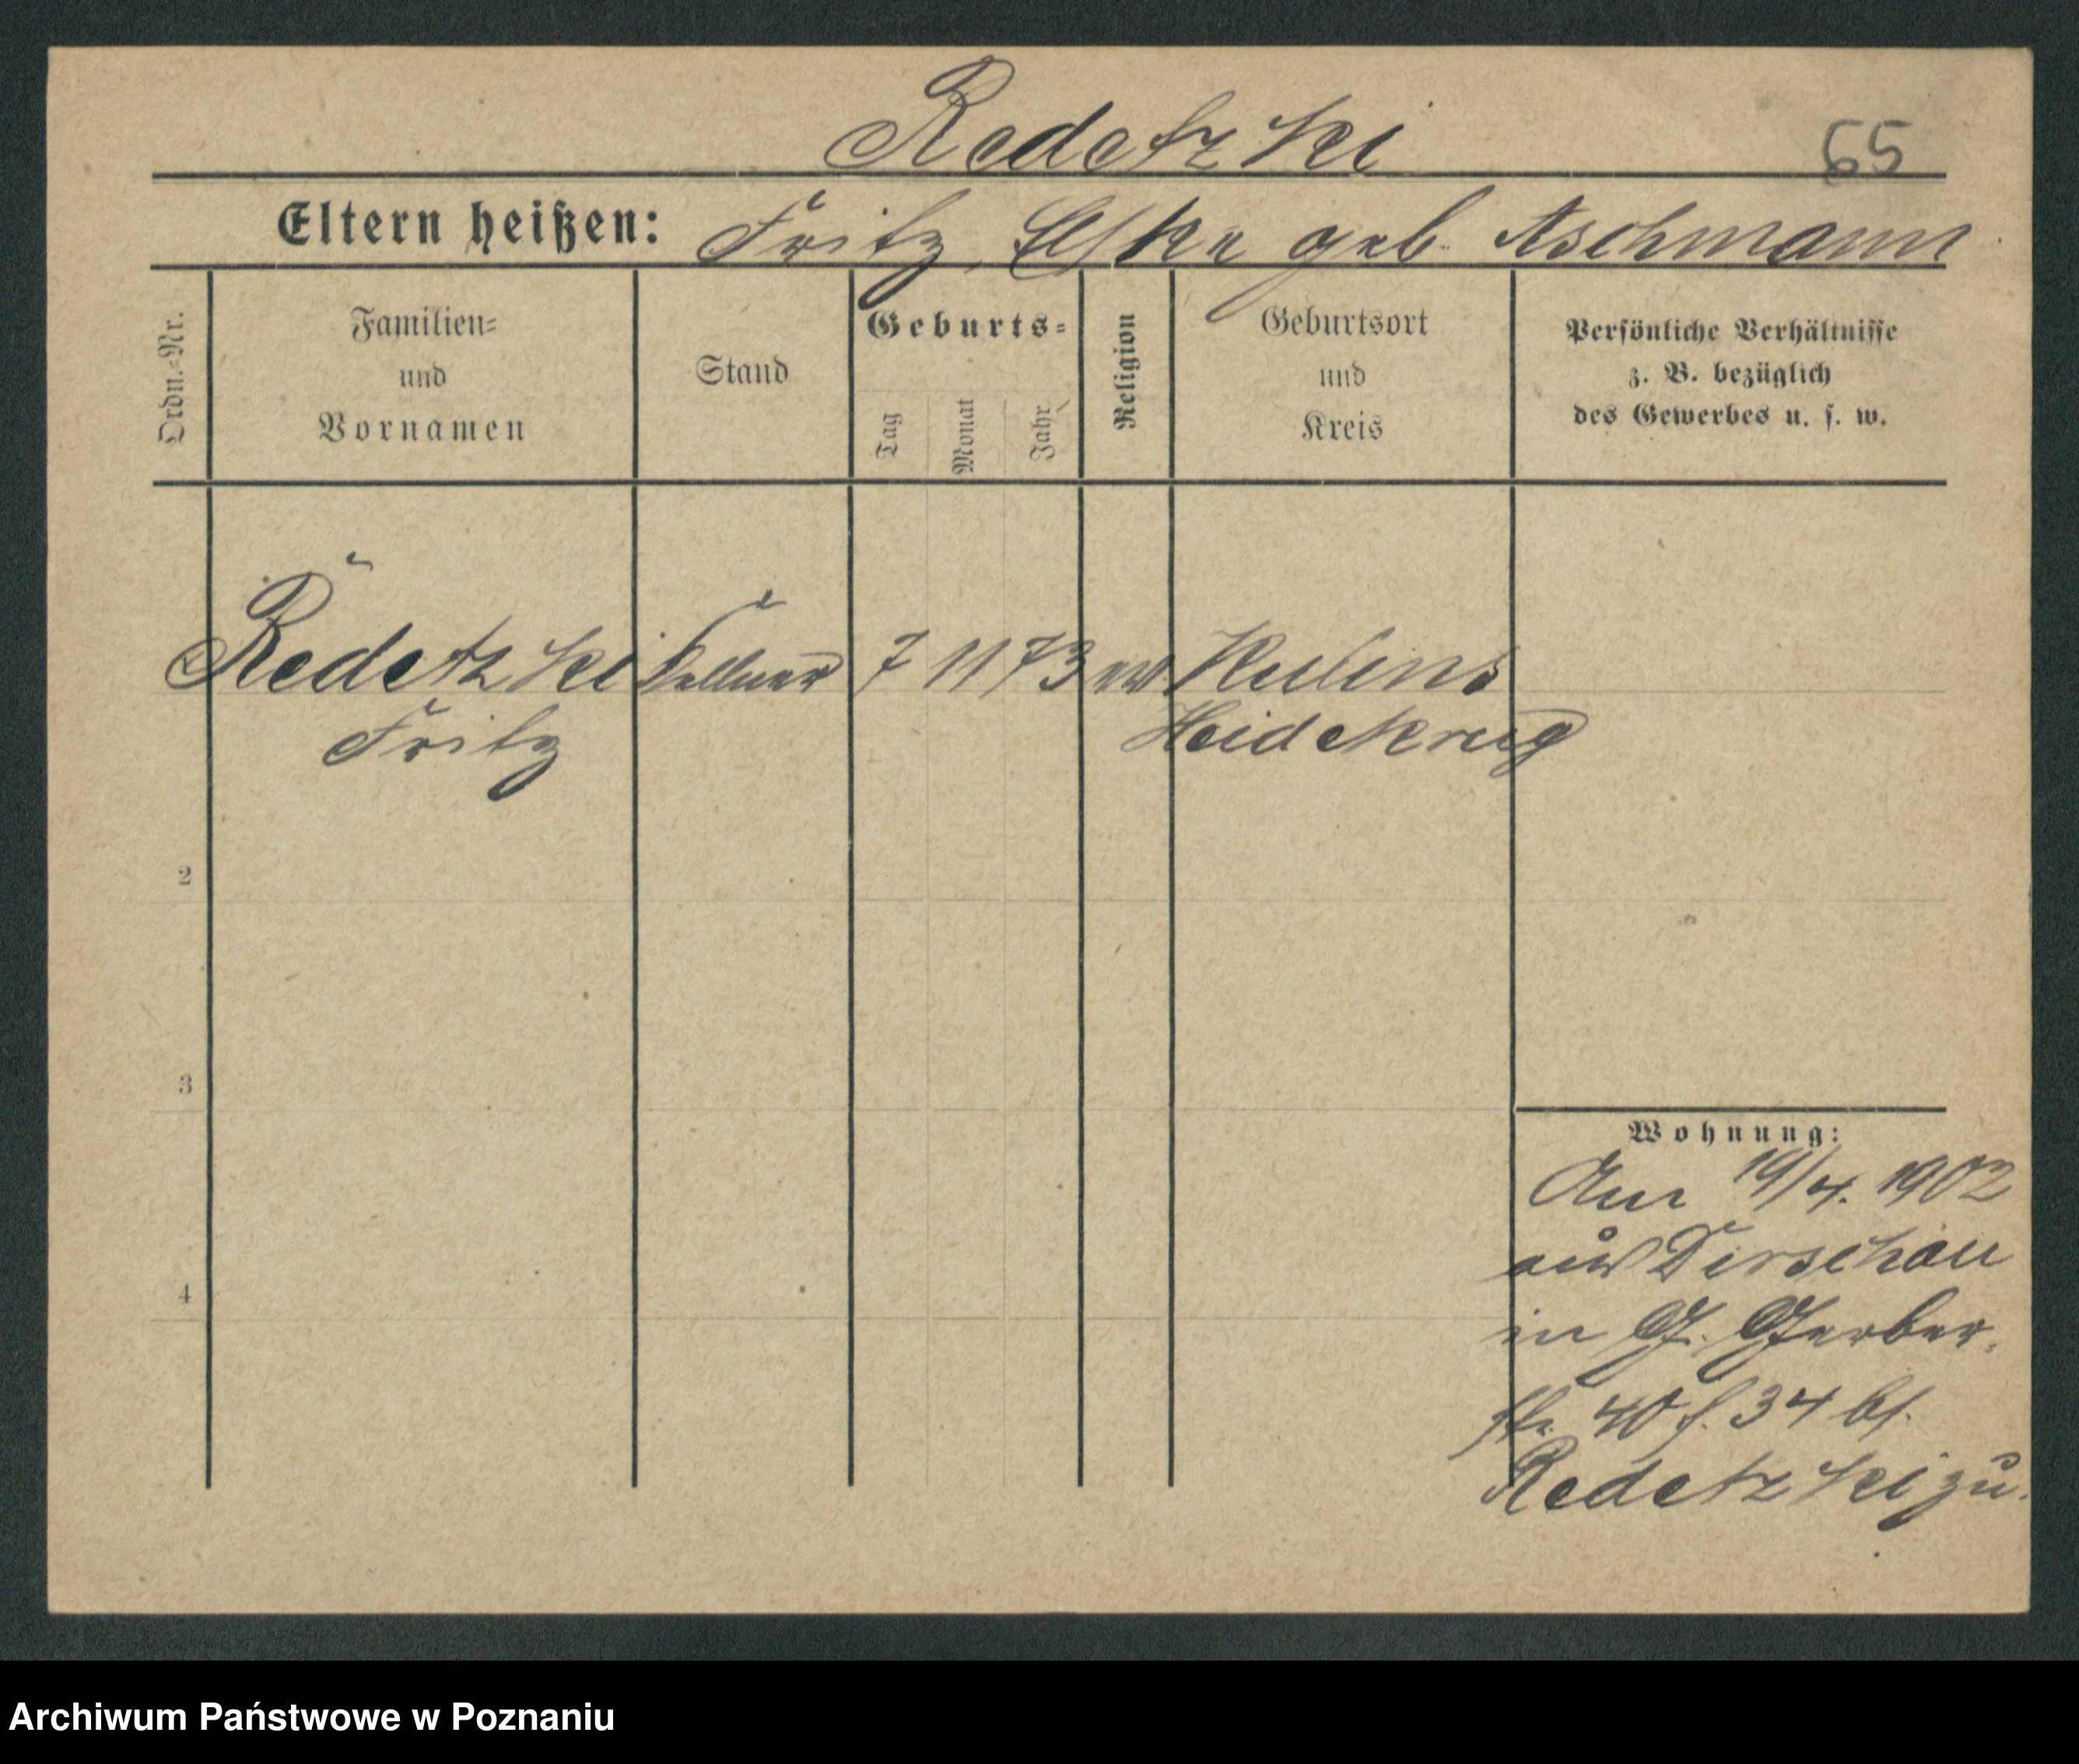 Redetzki
65
Eltern heißen: Fritz, Elske geb. Aschmann
Ordn.=Nr.
Familien=
und
Vornamen
Stand
Geburts=
Tag
Monat
Jahr
Religion
Geburtsort
und
Kreis
Persönliche Verhältnisse
z. B. bezüglich
des Gewerbes u. s. w.
Redetzki Kellner 7 11 73 ev
Fritz Heidekrug
2
3
4
Wohnung:
Am 19/4. 1902
aus Dirschau
in G. Gerber-
str. 40 f. 34 bf.
Redetzki zu.
Archiwum Państwowe w Poznaniu